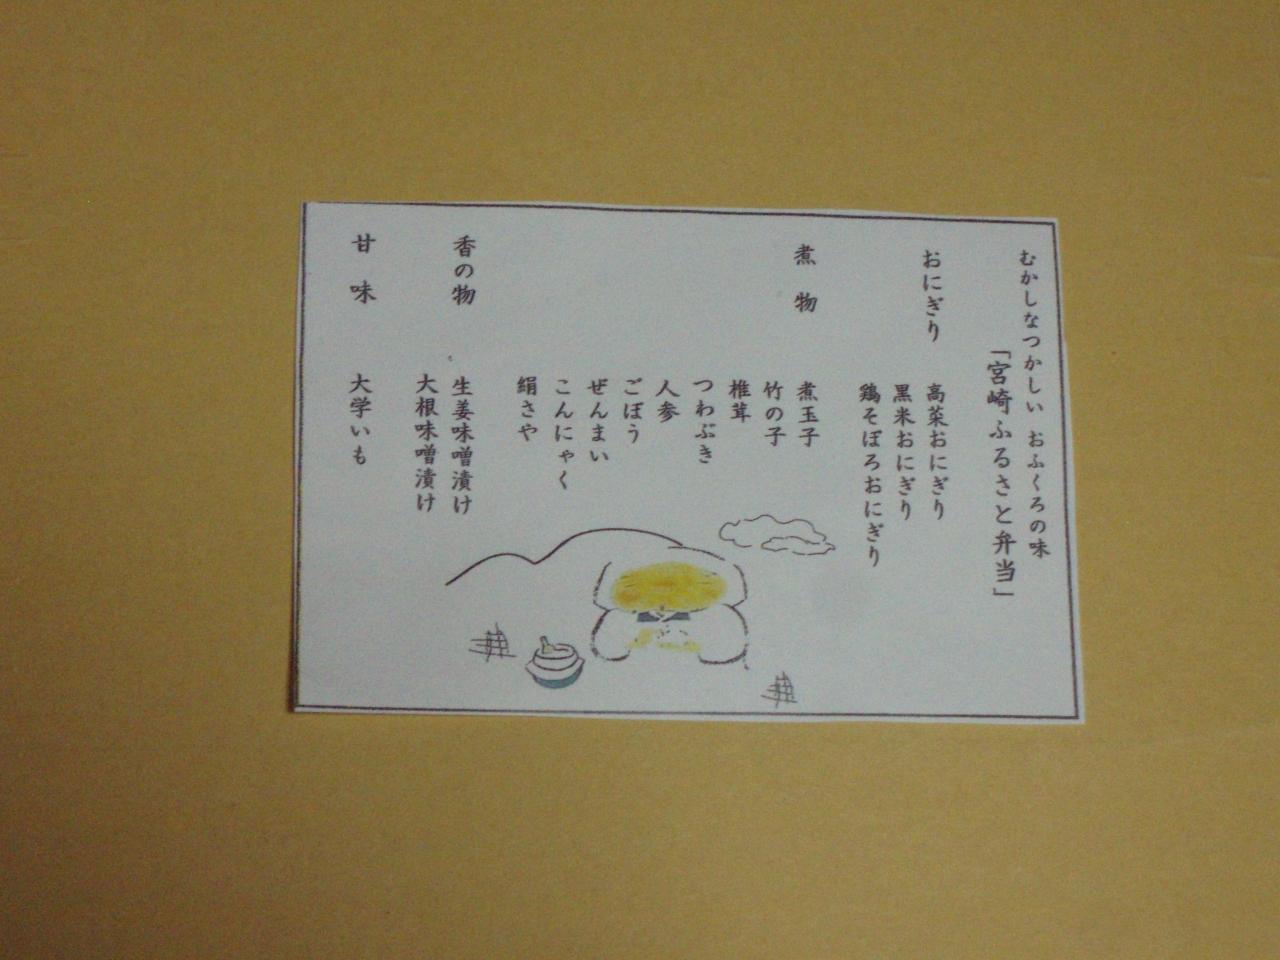 むかしなつかしい おふくろの味
「宮崎ふるさと弁当」
おにぎり 高菜おにぎり
黒米おにぎり
鶏そぼろおにぎり
煮物 煮玉子
竹の子
椎茸
つわぶき
人参
ごぼう
ぜんまい
こんにゃく
絹さや
香の物 生姜味噌漬け
大根味噌漬け
甘味 大学いも